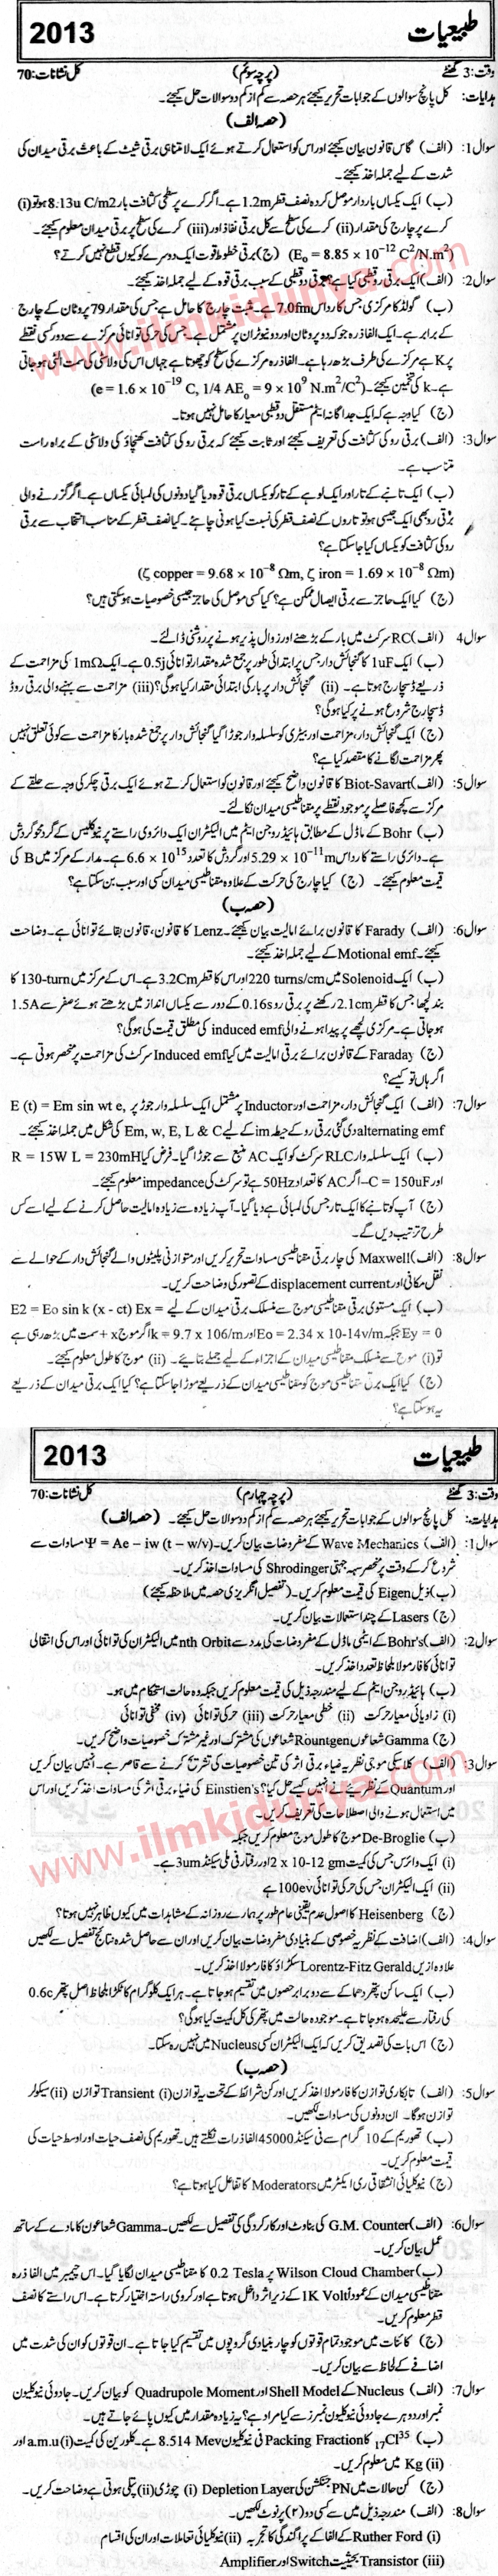 طبیعیات 2013
وقت: 3 گھنٹے (پرچہ سوئم) کل نشانات: 70
ہدایات: کل پانچ سوالوں کے جوابات تحریر کیجئے ہر حصہ سے کم از کم دو سوالات حل کیجئے۔
(حصہ الف)
سوال1: (الف) گاس قانون بیان کیجئے اور اس کو استعمال کرتے ہوئے ایک لامتناہی برقی شیٹ کے باعث برقی میدان کی
شدت کے لیے جملہ اخذ کیجئے۔
(ب) ایک یکساں باردار موصل کردہ نصف قطر 1.2m ہے۔ اگر کرے پر سطحی کثافت بار 8.13u C/m2 ہو تو (i)
کرے پر چارج کی مقدار (ii) کرے کی سطح سے کل برقی نفاذ اور (iii) کرے کی سطح پر برقی میدان معلوم کیجئے۔
(Eo = 8.85 x 10-12 C2/N.m2) (ج) برقی خطوط قوت ایک دوسرے کو کیوں قطع نہیں کرتے؟
سوال2: (الف) ایک برقی دو قطبی کیا ہے؟ برقی دو قطبی کے سبب برقی قوہ کے لیے جملہ اخذ کیجئے۔
(ب) گولڈ کا مرکزی جس کا رداس 7.0fm ہے۔ مثبت چارج کا حامل ہے جس کی مقدار 79 پروٹان کے چارج
کے برابر ہے۔ ایک الفا ذرہ جو کہ دو پروٹان اور دو نیوٹران پر مشتمل ہے۔ جس کی حرکی توانائی مرکزے سے دور کسی نقطے
پر K ہے مرکزے کی طرف بڑھ رہا ہے۔ الفا ذرہ مرکزے کی سطح کو چھوتا ہے جہاں اس کی ولاسٹی کی سمت الٹی ہو جاتی
ہے۔ k کی تخمین کیجئے۔ (e = 1.6 x 10-19 C, 1/4 AEo = 9 x 109 N.m2/C2)
(ج) کیا وجہ ہے کہ ایک جداگانہ ایٹم مستقل دو قطبی معیار کا حامل نہیں ہوتا۔
سوال3: (الف) برقی رو کی کثافت کی تعریف کیجئے اور ثابت کیجئے کہ برقی رو کی کثافت کھنچاؤ کی ولاسٹی کے براہ راست
متناسب ہے۔
(ب) ایک تانبے کے تار اور ایک لوہے کے تار کو یکساں برقی قوہ دیا گیا دونوں کی لمبائی یکساں ہے۔ اگر گزرنے والی
برقی رو بھی ایک جیسی ہو تو تاروں کے نصف قطر کی نسبت کیا ہونی چاہئے۔ کیا نصف قطر کے مناسب انتخاب سے برقی
رو کی کثافت کو یکساں کیا جا سکتا ہے؟
(ζ copper = 9.68 x 10-8 Ωm, ζ iron = 1.69 x 10-8 Ωm)
(ج) کیا ایک حاجز سے برقی ایصال ممکن ہے؟ کیا کسی موصل کی حاجز جیسی خصوصیات ہو سکتی ہیں؟
سوال4 (الف) RC سرکٹ میں بار کے بڑھنے اور زوال پذیر ہونے پر روشنی ڈالئے۔
(ب) ایک 1uF کا گنجائش دار جس پر ابتدائی طور پر جمع شدہ مقدار توانائی 0.5j ہے۔ ایک 1mΩ کی مزاحمت کے
ذریعے ڈسچارج ہوتا ہے۔ (ii) گنجائش دار پر بار کی ابتدائی مقدار کیا ہوگی؟ (iii) مزاحمت سے بہنے والی برقی روڈ
ڈسچارج شروع ہونے پر کیا ہوگی؟
(ج) ایک گنجائش دار، مزاحمت اور بیٹری کو سلسلہ وار جوڑا گیا گنجائش دار پر جمع شدہ بار کا مزاحمت سے کوئی تعلق نہیں
پھر مزاحمت لگانے کا مقصد کیا ہے؟
سوال5: (الف) Biot-Savart کا قانون واضح کیجئے اور قانون کو استعمال کرتے ہوئے ایک برقی چکر کی وجہ سے حلقے کے
مرکز سے کچھ فاصلے پر موجود نقطے پر مقناطیسی میدان نکالئے۔
(ب) Bohr کے ماڈل کے مطابق ہائیڈروجن ایٹم میں الیکٹران ایک دائروی راستے پر نیوکلیس کے گرد محو گردش
ہے۔ دائری راستے کا رداس 5.29 x 10-11m اور گردش کا تعدد 6.6 x 1015 ہے۔ مدار کے مرکز میں B کی
قیمت معلوم کیجئے۔ (ج) کیا چارج کی حرکت کے علاوہ مقناطیسی میدان کسی اور سبب بن سکتا ہے؟
(حصہ ب)
سوال6: (الف) Farady کا قانون برائے امالیت بیان کیجئے۔ Lenz کا قانون، قانون بقائے توانائی ہے۔ وضاحت
کیجئے۔ Motional emf کے لیے جملہ اخذ کیجئے۔
(ب) ایک Solenoid میں 220 turns/cm اور اس کا قطر 3.2Cm ہے۔ اس کے مرکز میں 130-turn کا
بند لچھا جس کا قطر 2.1cm رکھنے پر برقی رو 0.16s کے دور سے یکساں انداز میں بڑھتے ہوئے صفر سے 1.5A
ہو جاتی ہے۔ مرکزی لچھے پر پیدا ہونے والی induced emf کی مطلق قیمت کی ہوگی؟
(ج) Faraday کے قانون برائے برقی امالیت میں کیا Induced emf سرکٹ کی مزاحمت پر منحصر ہوتی ہے۔
اگر ہاں تو کیسے؟
سوال7: (الف) ایک گنجائش دار، مزاحمت اور Inductor پر مشتمل ایک سلسلہ وار جوڑ پر E (t) = Em sin wt e,
alternating emf دی گئی برقی رو کے حیطہ im کے لیے Em, w, E, L & C کی شکل میں جملہ اخذ کیجئے۔
(ب) ایک سلسلہ وار RLC سرکٹ کو ایک AC منبع سے جوڑا گیا۔ فرض کیا R = 15W L = 230mH
اور C = 150uF۔ اگر AC کا تعداد 50Hz ہے تو سرکٹ کی impedance معلوم کیجئے۔
(ج) آپ کو تانبے کا ایک تار جس کی لمبائی ہے دیا گیا۔ آپ زیادہ سے زیادہ امالیت حاصل کرنے کے لیے اسے کس
طرح ترتیب دیں گے۔
سوال8: (الف) Maxwell کی چار برقی مقناطیسی مساوات تحریر کریں اور متوازی پلیٹوں والے گنجائش دار کے حوالے سے
نقل مکانی اور displacement current کے تصور کی وضاحت کریں۔
(ب) ایک مستوی برقی مقناطیسی موج سے منسلک برقی میدان کے لیے E2 = Eo sin k (x - ct) Ex =
Ey = 0 جبکہ Eo = 2.34 x 10-14v/m اور k = 9.7 x 106/m اگر موج x+ سمت میں بڑھ رہی ہے
تو (i) موج سے منسلک مقناطیسی میدان کے اجزاء کے لیے جملے بنائیے۔ (ii) موج کا طول معلوم کیجئے۔
(ج) کیا ایک برقی مقناطیسی موج کو مقناطیسی میدان کے ذریعے موڑا جا سکتا ہے؟ کیا ایک برقی میدان کے ذریعے
یہ ہو سکتا ہے؟
طبیعیات 2013
وقت: 3 گھنٹے (پرچہ چہارم) کل نشانات: 70
ہدایات: کل پانچ سوالوں کے جوابات تحریر کیجئے ہر حصہ سے کم از کم دو سوالات حل کیجئے۔ (حصہ الف)
سوال1: (الف) Wave Mechanics کے مفروضات بیان کریں۔ Ψ = Ae - iw (t – w/v) مساوات سے
شروع کر کے وقت پر منحصر سہ جہتی Shrodinger کی مساوات اخذ کریں۔
(ب) ذیل Eigen کی قیمت معلوم کریں۔ (تفصیل انگریزی حصہ میں ملاحظہ کیجئے)
(ج) Lasers کے چند استعمالات بیان کریں۔
سوال2: (الف) Bohr's کے ایٹمی ماڈل کے مفروضات کی مدد سے nth Orbit میں الیکٹران کی توانائی اور اس کی انتقالی
توانائی کا فارمولا بلحاظ تعدد اخذ کریں۔
(ب) ہائیڈروجن ایٹم کے لیے مندرجہ ذیل کی قیمت معلوم کریں جبکہ وہ حالت استحکام میں ہو۔
(i) زاویائی معیار حرکت (ii) خطی معیار حرکت (iii) حرکی توانائی (iv) مخفی توانائی
(ج) Gamma شعاعوں Rountgen شعاعوں کی مشترک اور غیر مشترک خصوصیات واضح کریں۔
سوال3: (الف) کلاسیکی موجی نظریہ ضیاء برقی اثر کی تین خصوصیات کی تشریح کرنے سے قاصر ہے۔ انہیں بیان کریں
اور Quantum کے نظریے نے انہیں کیسے حل کیا؟ Einstien's کی ضیاء برقی اثر کی مساوات اخذ کریں اور اس
میں استعمال ہونے والی اصطلاحات کی تعریف کریں۔
(ب) De-Broglie موج کا طول موج معلوم کریں جبکہ
(i) ایک وائرس جس کی کمیت 2 x 10-12 gm اور رفتار فی ملی سیکنڈ 3um ہے۔
(ii) ایک الیکٹران جس کی حرکی توانائی 100ev ہے
(ج) Heisenberg کا اصول عدم یقینی عام طور پر ہمارے روزانہ کے مشاہدات میں کیوں ظاہر نہیں ہوتا؟
سوال4: (الف) اضافت کے نظریہ خصوصی کے بنیادی مفروضات بیان کریں اور ان سے حاصل شدہ نتائج تفصیل سے لکھیں
علاوہ ازیں Lorentz-Fitz Gerald سکڑاؤ کا فارمولا اخذ کریں۔
(ب) ایک ساکن پتھر دھماکے سے دو برابر حصوں میں تقسیم ہو جاتا ہے۔ ہر ایک کلوگرام کا ٹکڑا بلحاظ اصل پتھر 0.6c
کی رفتار سے علیحدہ ہو جاتا ہے۔ موجودہ حالت میں پتھر کی کل کمیت کیا ہوگی؟
(ج) اس بات کی تصدیق کریں کہ ایک الیکٹران کسی Nucleus میں نہیں رہ سکتا۔
(حصہ ب)
سوال5: (الف) تابکاری توازن کا فارمولا اخذ کریں اور کن شرائط کے تحت یہ توازن (i) Transient توازن (ii) سیکولر
توازن ہوگا۔ ان دونوں کی مساوات لکھیں۔
(ب) تھوریم کے 10 گرام سے فی سیکنڈ 45000 الفا ذرات نکلتے ہیں۔ تھوریم کی نصف حیات اور اوسط حیات کی
قیمت معلوم کریں۔
(ج) نیوکلیائی انشقاقی ری ایکٹر میں Moderators کا تفاعل کیا ہوتا ہے؟
سوال6: (الف) G.M. Counter کی بناوٹ اور کارکردگی کی تفصیل سے لکھیں۔ Gamma شعاعوں کا مادے کے ساتھ
عمل بیان کریں۔
(ب) Wilson Cloud Chamber پر 0.2 Tesla کا مقناطیسی میدان لگایا گیا۔ اس چیمبر میں الفا ذرہ
مقناطیسی میدان کے عموداً 1K Volt کے زیر اثر داخل ہوتا ہے اور کروی راستہ اختیار کرتا ہے۔ اس راستے کا نصف
قطر معلوم کریں۔
(ج) کائنات میں موجود تمام قوتوں کو چار بنیادی گروپوں میں تقسیم کیا جاتا ہے۔ ان قوتوں کو ان کی شدت میں
اضافے کے لحاظ سے بیان کریں۔
سوال7: (الف) Nucleus کے Shell Model اور Quadrupole Moment کو بیان کریں۔ جادوئی نیوکلیون
نمبر اور دوہرے جادوئی نیوکلیون نمبرز سے کیا مراد ہے؟ یہ زیادہ مقدار میں کیوں پائے جاتے ہیں۔
(ب) 17Cl35 کا Packing Fraction فی نیوکلیون 8.514 Mev ہے۔ کلورین کی کمیت (i) a.m.u اور
(ii) Kg میں معلوم کریں۔
(ج) کن حالات میں PN جنکشن کی Depletion Layer (i) چوڑی (ii) پتلی ہوتی ہے وضاحت کریں۔
سوال8: (الف) مندرجہ ذیل میں سے کسی دو (۲) پر نوٹ لکھیں۔
(i) Ruther Ford کے الفا کے پراگندگی کا تجربہ (ii) نیوکلیائی تعاملات اور ان کی اقسام
(iii) Transistor بحیثیت Switch اور Amplifier
www.ilmkidunya.com
www.ilmkidunya.com